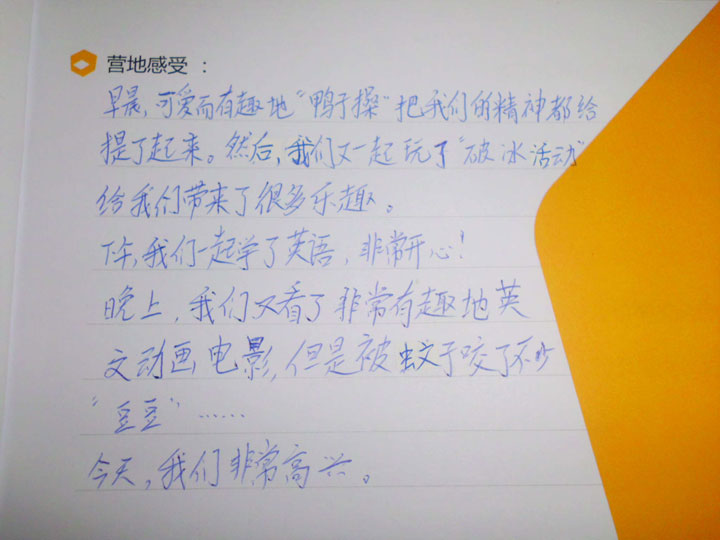 营地感受：
早晨，可爱而有趣地“鸭子操”把我们的精神都给
提了起来。然后，我们又一起玩了“破冰活动”
给我们带来了很多乐趣。
下午，我们一起学了英语，非常开心！
晚上，我们又看了非常有趣地英
文动画电影，但是被蚊子咬了不少
“豆豆”……
今天，我们非常高兴。